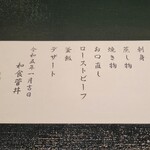 刺身
蒸し物
焼き物
お口直し
ローストビーフ
釜飯
デザート
令和五年一月吉日
和食菅井